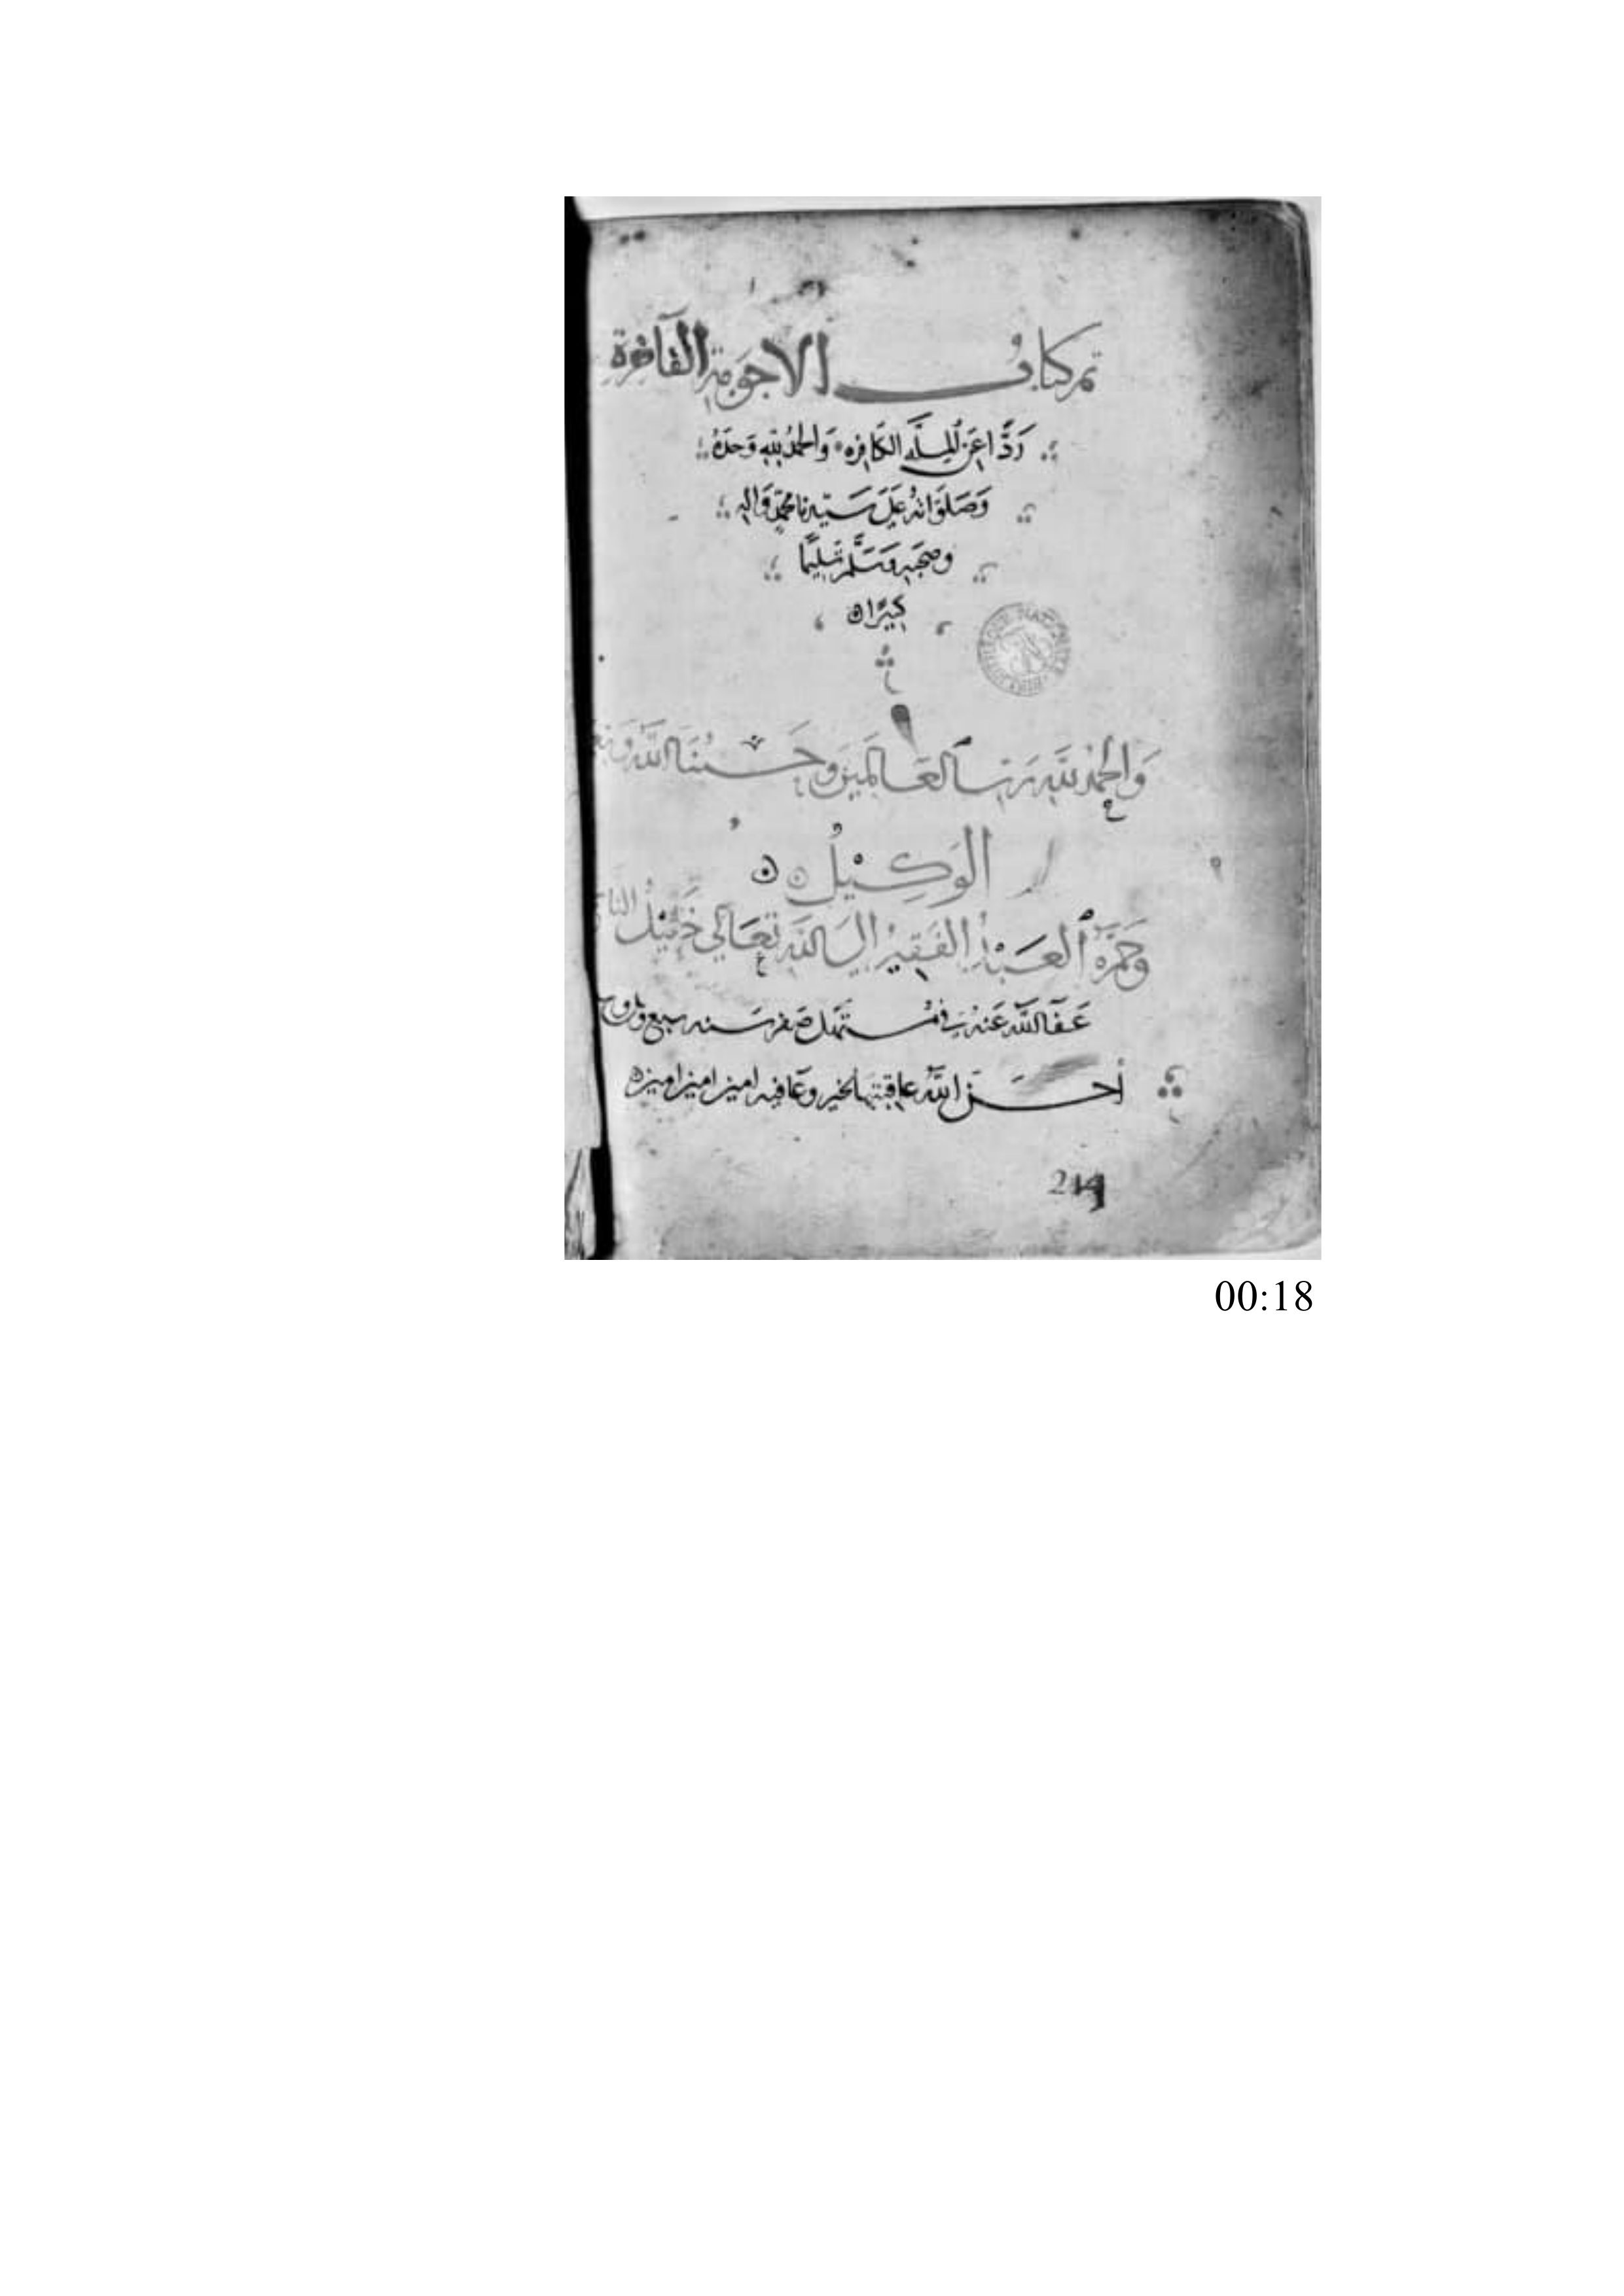 تم كتاب الاجوبة الفاخرة
رَدًّا عَن المِلَّه الكَافِره وَالحمدُ للهِ وَحدَهُ
وَصَلَوَاته عَلَى سَيّدنا محمّدٍ وَاله
وصحبه وَسَلَّم تَسليمًا
كثيرًا ه
وَالحمدُ للَّهِ رَبِّ العَالَمينَ وحَسْبُنَا اللَّهُ وَنِعْمَ
الوَكِيْلُ
العَبْدُ الفَقيرُ إلى الله تعَالى خَليْل
عَفَا اللَّه عَنهُ في مُستَهَل صَفر سَنه سبع
أحسَن اللَّه عاقبتها بخير وعَافيه امين امين امين ه
244
00:18